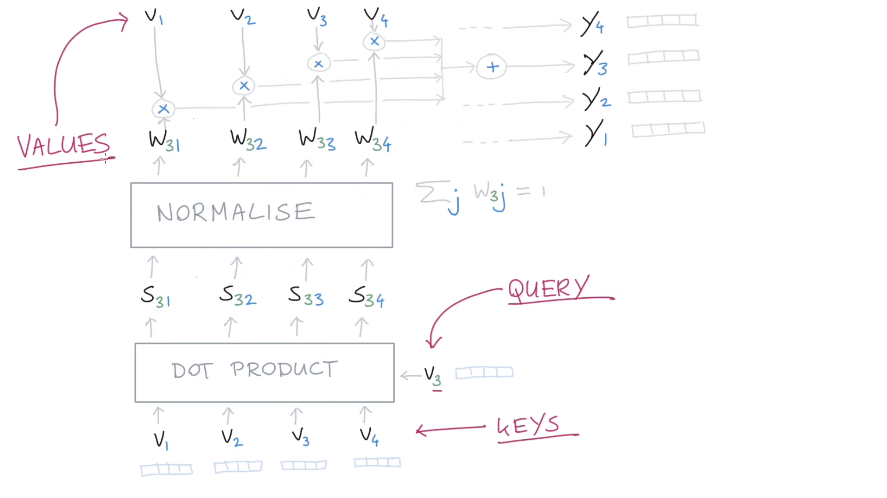 V1 V2 V3 V4
Y4
Y3
Y2
Y1
× × × × +
VALUES
W31 W32 W33 W34
NORMALISE
∑j W3j = 1
S31 S32 S33 S34
QUERY
DOT PRODUCT
V3
V1 V2 V3 V4
KEYS